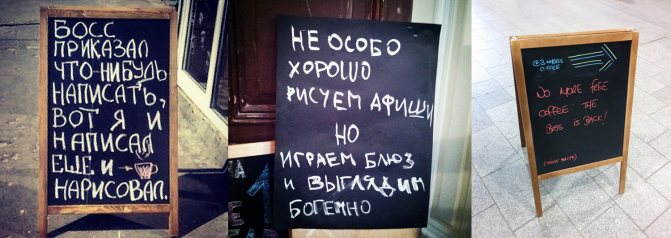 БОСС
ПРИКАЗАЛ
ЧТО-НИБУДЬ
НАПИСАТЬ,
ВОТ Я И
НАПИСАЛ
ЕЩЕ И
НАРИСОВАЛ.
НЕ ОСОБО
ХОРОШО
РИСУЕМ АФИШИ
НО
ИГРАЕМ БЛЮЗ
И ВЫГЛЯДИМ
БОГЕМНО
COFFEE
NO MORE FREE
COFFEE: THE
BOSS IS BACK!